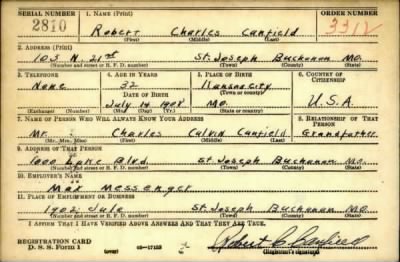 SERIAL NUMBER 1. NAME (Print) ORDER NUMBER
2810 Robert Charles Canfield 3312
(First) (Middle) (Last)
2. ADDRESS (Print)
103 N. 21st St. Joseph Buchanan Mo.
(Number and street or R. F. D. number) (Town) (County) (State)
3. TELEPHONE 4. AGE IN YEARS 5. PLACE OF BIRTH 6. COUNTRY OF CITIZENSHIP
None 32 Kansas City
DATE OF BIRTH (Town or county)
July 14 1908 Mo. U.S.A.
(Exchange) (Number) (Mo.) (Day) (Yr.) (State or country)
7. NAME OF PERSON WHO WILL ALWAYS KNOW YOUR ADDRESS 8. RELATIONSHIP OF THAT PERSON
Mr. Charles Calvin Canfield Grandfather
(Mr., Mrs., Miss) (First) (Middle) (Last)
9. ADDRESS OF THAT PERSON
1000 Lake Blvd. St. Joseph Buchanan Mo.
(Number and street or R. F. D. number) (Town) (County) (State)
10. EMPLOYER'S NAME
Max Messenger
11. PLACE OF EMPLOYMENT OR BUSINESS
1902 Jule St. Joseph Buchanan Mo.
(Number and street or R. F. D. number) (Town) (County) (State)
I AFFIRM THAT I HAVE VERIFIED ABOVE ANSWERS AND THAT THEY ARE TRUE.
REGISTRATION CARD
D. S. S. Form 1 Robert C. Canfield
(Registrant's signature)